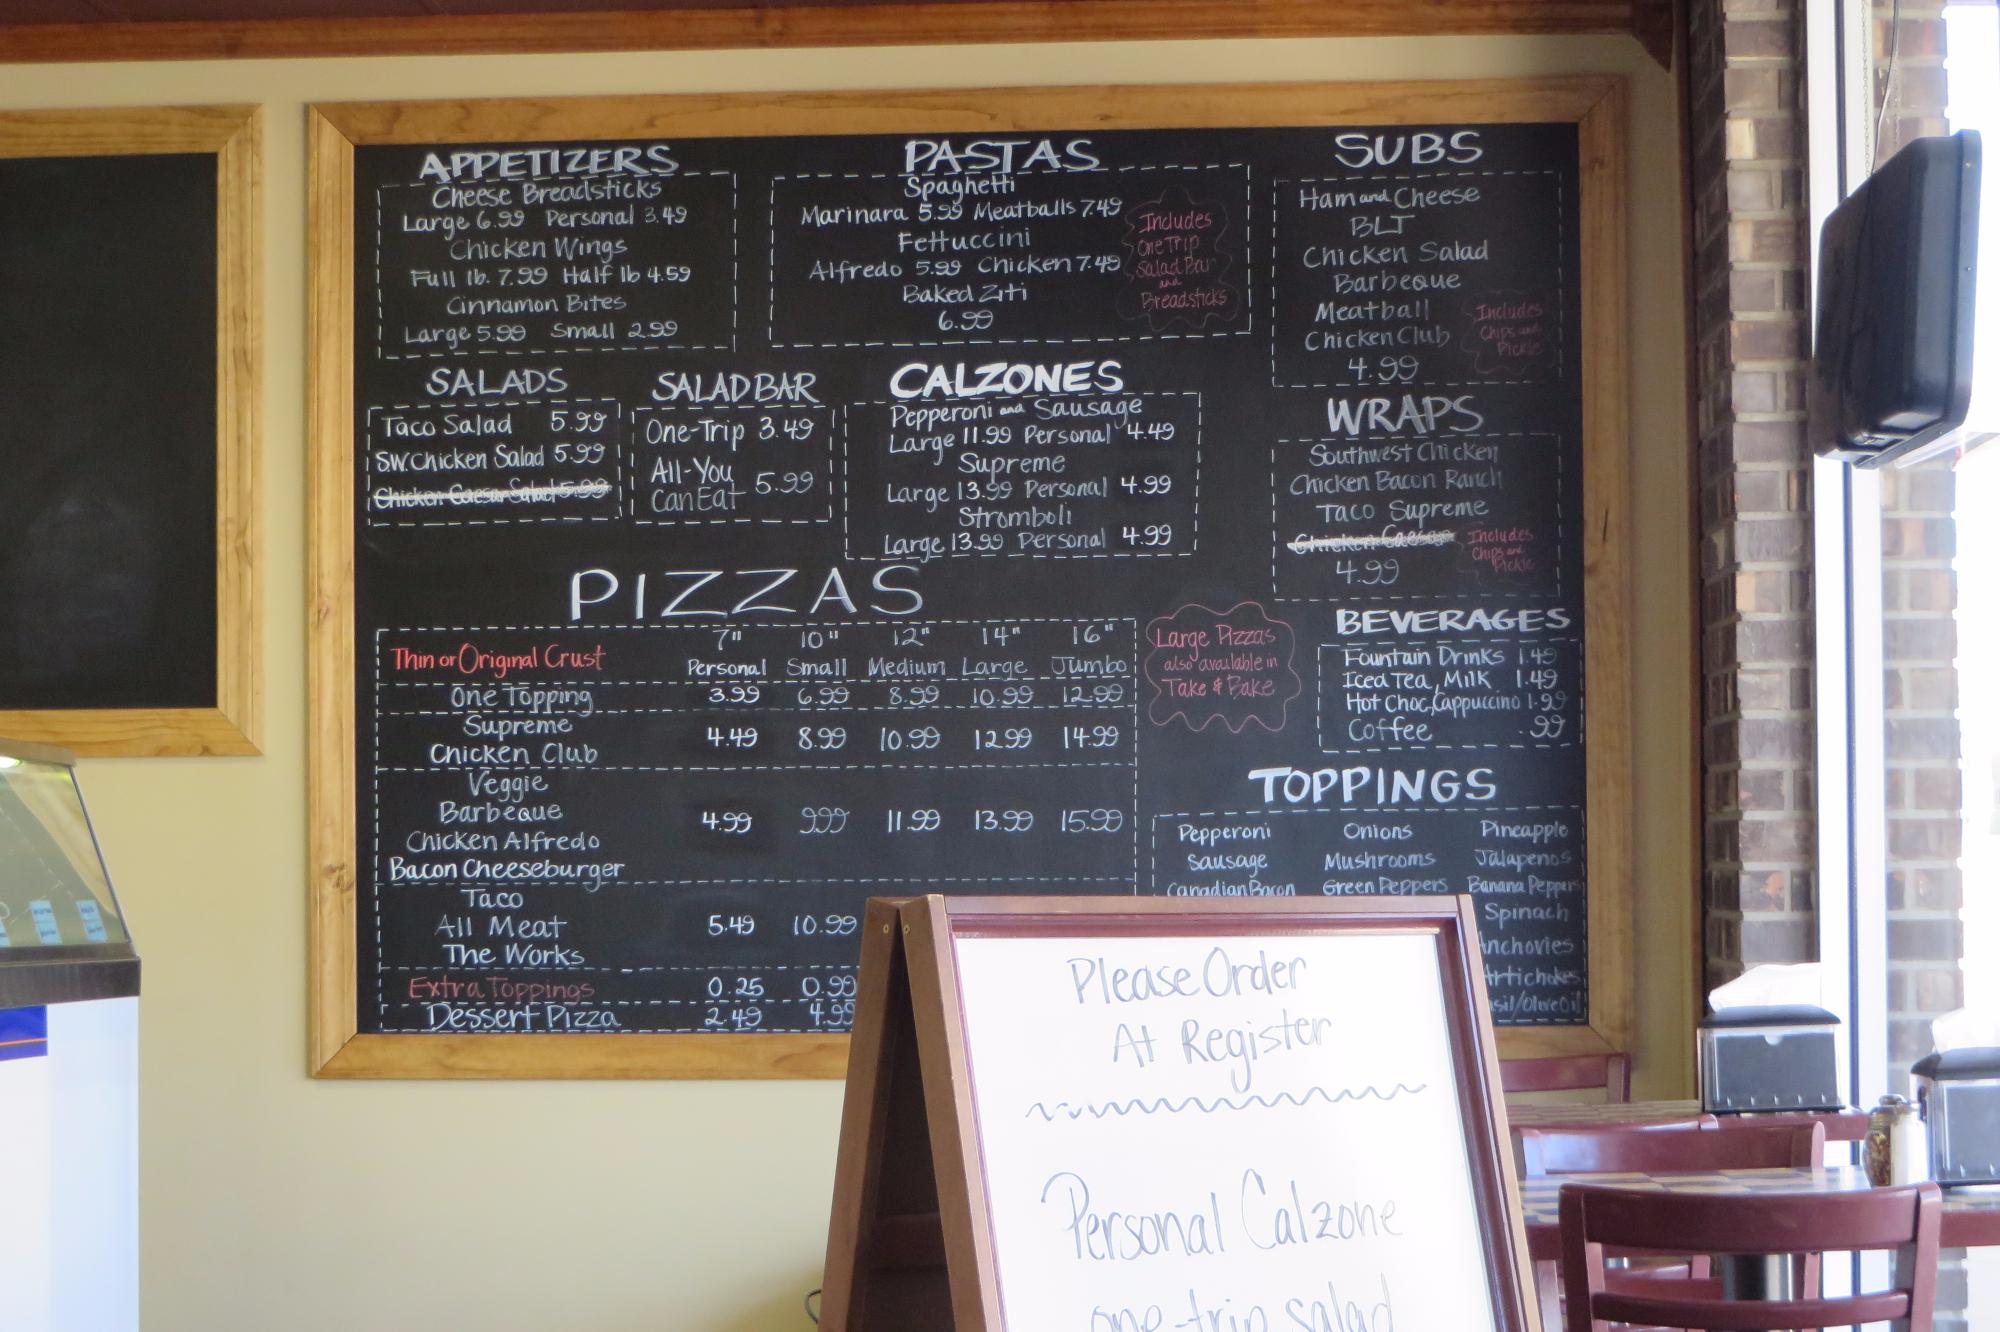 APPETIZERS
Cheese Breadsticks
Large 6.99 Personal 3.49
Chicken Wings
Full lb. 7.99 Half lb 4.59
Cinnamon Bites
Large 5.99 Small 2.99
PASTAS
Spaghetti
Marinara 5.99 Meatballs 7.49
Fettuccini
Alfredo 5.99 Chicken 7.49
Baked Ziti
6.99
Includes
One Trip
Salad Bar
and
Breadsticks
SUBS
Ham and Cheese
BLT
Chicken Salad
Barbeque
Meatball
Chicken Club
4.99
Includes
Chips and
Pickle
SALADS
Taco Salad 5.99
SW Chicken Salad 5.99
Chicken Caesar Salad 5.99
SALAD BAR
One-Trip 3.49
All-You
Can Eat 5.99
CALZONES
Pepperoni and Sausage
Large 11.99 Personal 4.49
Supreme
Large 13.99 Personal 4.99
Stromboli
Large 13.99 Personal 4.99
WRAPS
Southwest Chicken
Chicken Bacon Ranch
Taco Supreme
Chicken Caesar
4.99
Includes
Chips and
Pickle
PIZZAS
7" 10" 12" 14" 16"
Thin or Original Crust Personal Small Medium Large Jumbo
One Topping 3.99 6.99 8.99 10.99 12.99
Supreme
Chicken Club 4.49 8.99 10.99 12.99 14.99
Veggie
Barbeque
4.99 9.99 11.99 13.99 15.99
Chicken Alfredo
Bacon Cheeseburger
Taco
All Meat 5.49 10.99
The Works
Extra Toppings 0.25 0.99
Dessert Pizza 2.49 4.99
Large Pizzas
also available in
Take & Bake
BEVERAGES
Fountain Drinks 1.49
Iced Tea, Milk 1.49
Hot Choc, Cappuccino 1.99
Coffee .99
TOPPINGS
Pepperoni Onions Pineapple
Sausage Mushrooms Jalapenos
Canadian Bacon Green Peppers Banana Peppers
Spinach
Anchovies
Artichokes
asil/Olive Oil
Please Order
At Register
Personal Calzone
one-trip salad